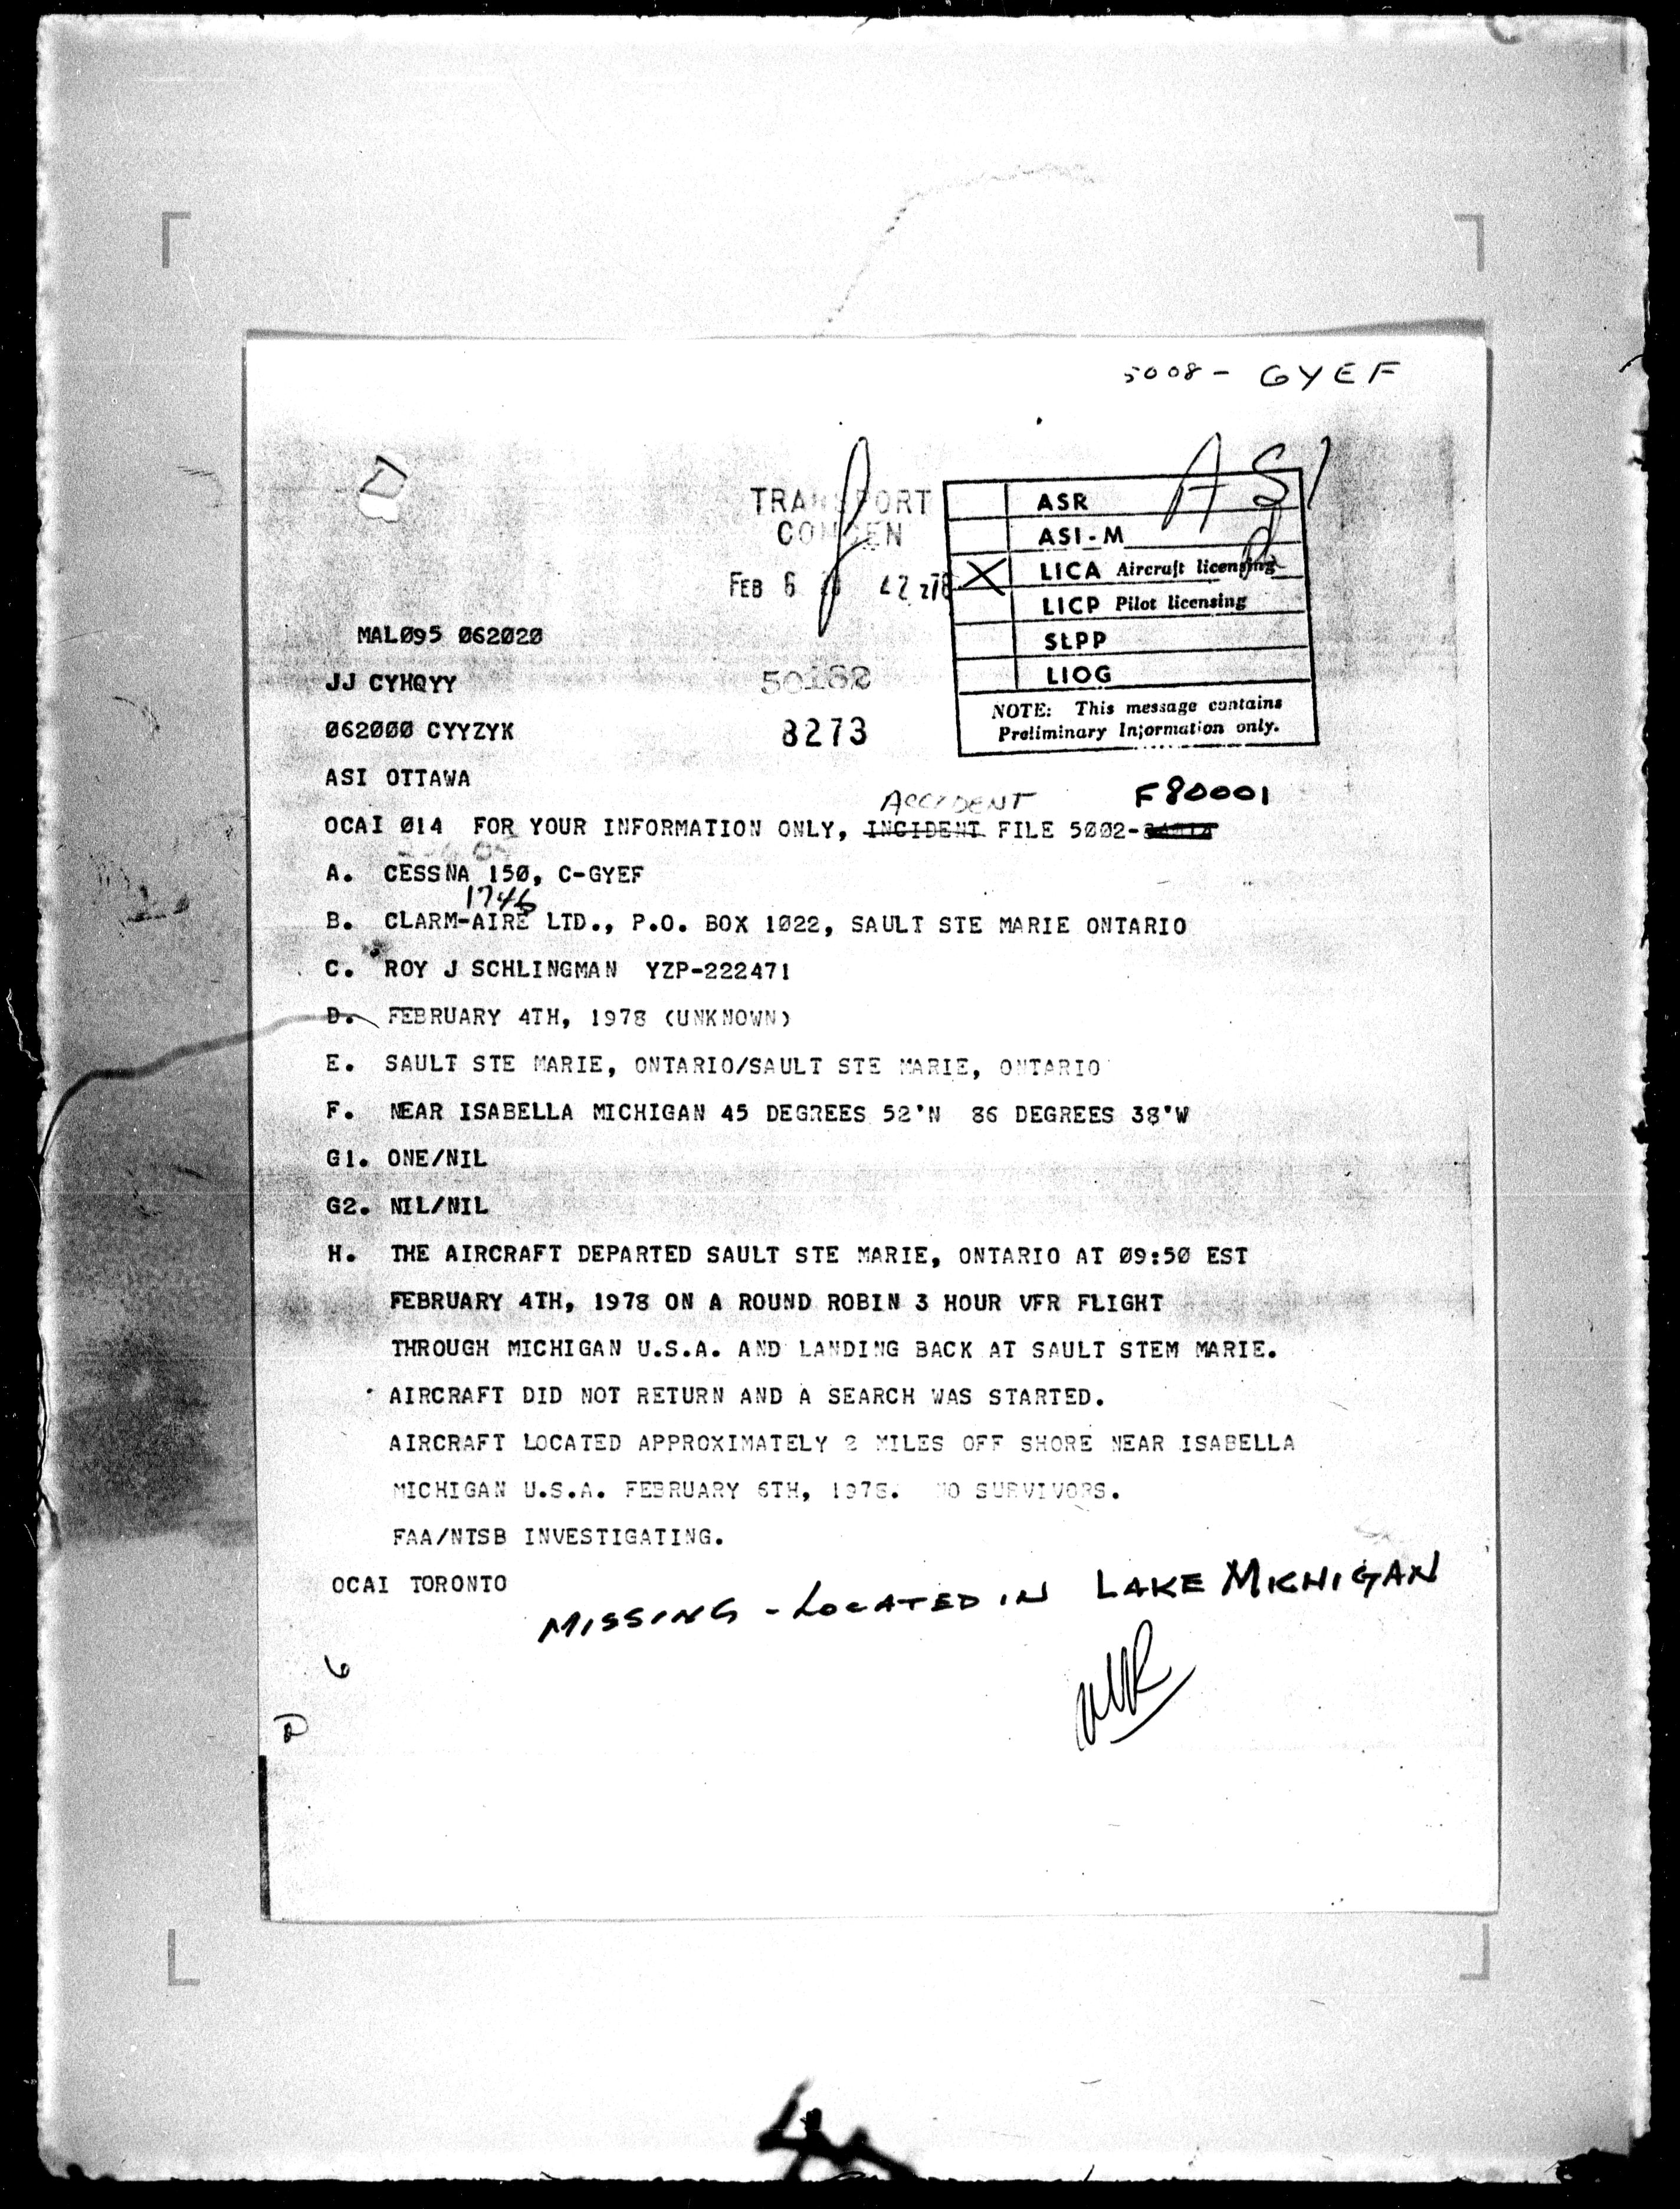 5008 - GYEF
ASI
TRANSPORT
COMCEN
FEB 6
ASR
ASI-M
X LICA Aircraft licensing
LICP Pilot licensing
SLPP
LIOG
NOTE: This message contains
Preliminary Information only.
MALØ95 Ø62Ø2Ø
JJ CYHQYY
50182
Ø62ØØØ CYYZYK
8273
ASI OTTAWA
ACCIDENT F80001
OCAI Ø14 FOR YOUR INFORMATION ONLY, INCIDENT FILE 5ØØ2-
A. CESSNA 15Ø, C-GYEF
1746
B. CLARM-AIRE LTD., P.O. BOX 1Ø22, SAULT STE MARIE ONTARIO
C. ROY J SCHLINGMAN YZP-222471
D. FEBRUARY 4TH, 1978 (UNKNOWN)
E. SAULT STE MARIE, ONTARIO/SAULT STE MARIE, ONTARIO
F. NEAR ISABELLA MICHIGAN 45 DEGREES 52'N 86 DEGREES 38'W
G1. ONE/NIL
G2. NIL/NIL
H. THE AIRCRAFT DEPARTED SAULT STE MARIE, ONTARIO AT Ø9:5Ø EST
FEBRUARY 4TH, 1978 ON A ROUND ROBIN 3 HOUR VFR FLIGHT
THROUGH MICHIGAN U.S.A. AND LANDING BACK AT SAULT STEM MARIE.
AIRCRAFT DID NOT RETURN AND A SEARCH WAS STARTED.
AIRCRAFT LOCATED APPROXIMATELY 2 MILES OFF SHORE NEAR ISABELLA
MICHIGAN U.S.A. FEBRUARY 6TH, 1978. NO SURVIVORS.
FAA/NTSB INVESTIGATING.
OCAI TORONTO
MISSING - LOCATED IN LAKE MICHIGAN